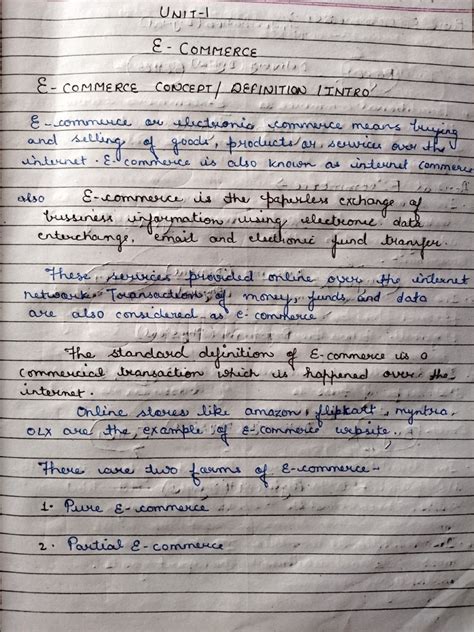 UNIT-1
E-COMMERCE
E-COMMERCE CONCEPT/ DEFINITION /INTRO'
E-commerce or electronic commerce means buying
and selling of goods, products or services over the
internet. E-commerce is also known as internet commerce
also E-commerce is the paperless exchange of
bussiness information using electronic data
enterchange, email and electronic fund transfer.
These services provided online over the internet
network. Transaction of money, funds, and data
are also considered as E-commerce
The standard definition of E-commerce is a
commercial transaction which is happened over the
internet.
Online stores like amazon, flipkart, myntra,
OLX are the example of E-commerce website.
There are two forms of E-commerce-
1. Pure E-commerce
2. Partial E-commerce